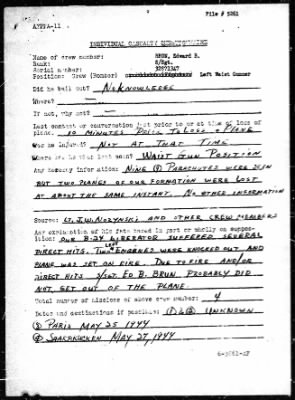 File # 5061
AFPPA-11
INDIVIDUAL CASUALTY QUESTIONNAIRE
Name of crew member: BRUN, Edward B.
Rank: S/Sgt.
Serial number: 32871347
Position: Crew (Bomber) Left Waist Gunner
Did he bail out? No KNOWLEDGE
Where? —
If not, why not? —
Last contact or conversation just prior to or at time of loss of
plane. 10 MINUTES PRIOR TO LOSS OF PLANE
Was he injured? NOT AT THAT TIME
Where was he when last seen? WAIST GUN POSITION
Any hearsay information: NINE (9) PARACHUTES WERE SEEN
BUT TWO PLANES OF OUR FORMATION WERE LOST
AT ABOUT THE SAME INSTANT. NO OTHER INFORMATION
Source: LT. J.W. NOZYNSKI AND OTHER CREW MEMBERS
Any explanation of his fate based in part or wholly on suppo-
sition: OUR B-24 LIBERATOR SUFFERED SEVERAL
DIRECT HITS. TWO LEFT ENGINES WERE KNOCKED OUT AND
PLANE WAS SET ON FIRE. DUE TO FIRE AND/OR
DIRECT HITS S/SGT. ED B. BRUN PROBABLY DID
NOT GET OUT OF THE PLANE.
Total number of missions of above crew member: 4
Dates and destinations if possible: (1) & (2) UNKNOWN
(3) PARIS MAY 25 1944
(4) SAARBRUCKEN MAY 27, 1944